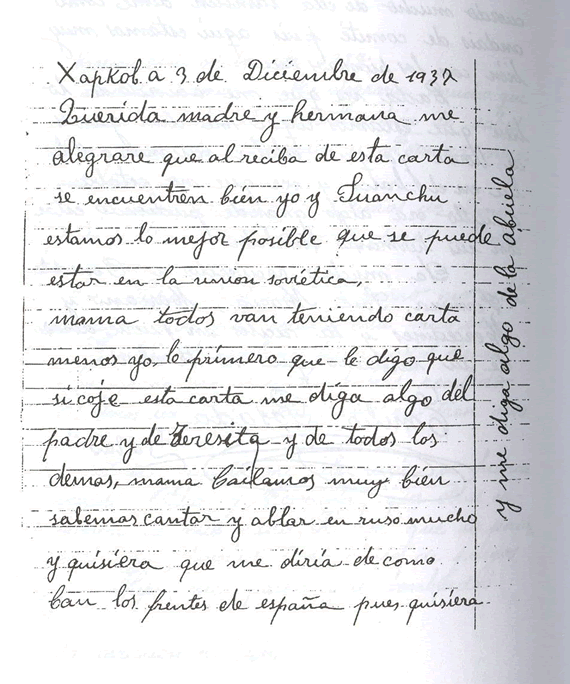 Харков. a 3 de Diciembre de 1937
Querida madre y hermana me
alegrare que al reciba de esta carta
se encuentren bien yo y Juanchu
estamos lo mejor posible que se puede
estar en la union soviética,
mama todos van teniendo carta
menos yo, lo primero que le digo que
si coje esta carta me diga algo del
padre y de Teresita y de todos los
demas, mama bailamos muy bien
sabemos cantar y ablar en ruso mucho
y quisiera que me diria de como
ban los frentes de españa pues quisiera
y me diga algo de la abuela